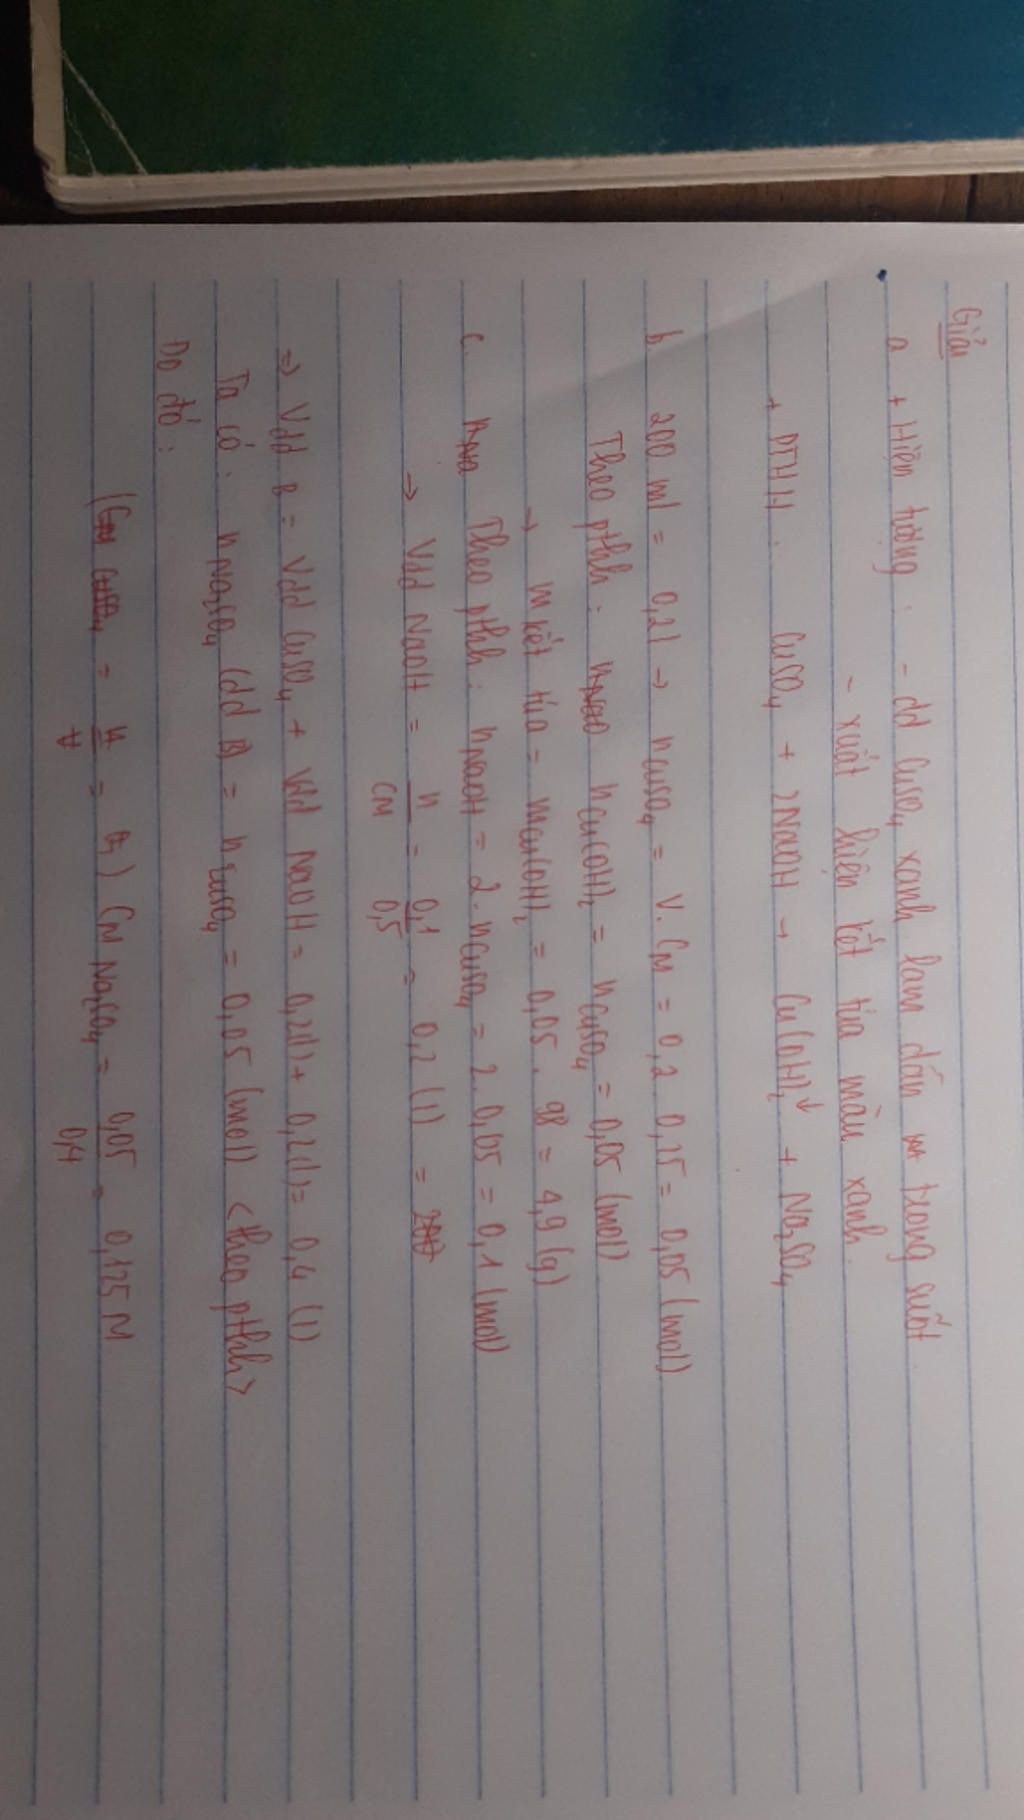 Giải
a + Hiện tượng: - dd CuSO4 xanh lam dần trong suốt
- xuất hiện kết tủa màu xanh.
+ PTHH: CuSO4 + 2NaOH → Cu(OH)2↓ + Na2SO4
b 200 ml = 0,2l → nCuSO4 = V.CM = 0,2 0,25 = 0,05 (mol)
Theo pthh: nCu(OH)2 = nCuSO4 = 0,05 (mol)
→ m kết tủa = mCu(OH)2 = 0,05 . 98 = 4,9 (g)
c. Theo pthh: nNaOH = 2.nCuSO4 = 2.0,05 = 0,1 (mol)
→ Vdd NaOH = n/CM = 0,1/0,5 = 0,2 (l)
=> Vdd B = Vdd CuSO4 + Vdd NaOH = 0,2(l) + 0,2(l) = 0,4 (l)
Ta có: nNa2SO4 (dd B) = nCuSO4 = 0,05 (mol) <theo pthh>
Do đó:
CM Na2SO4 = 0,05/0,4 = 0,125 M